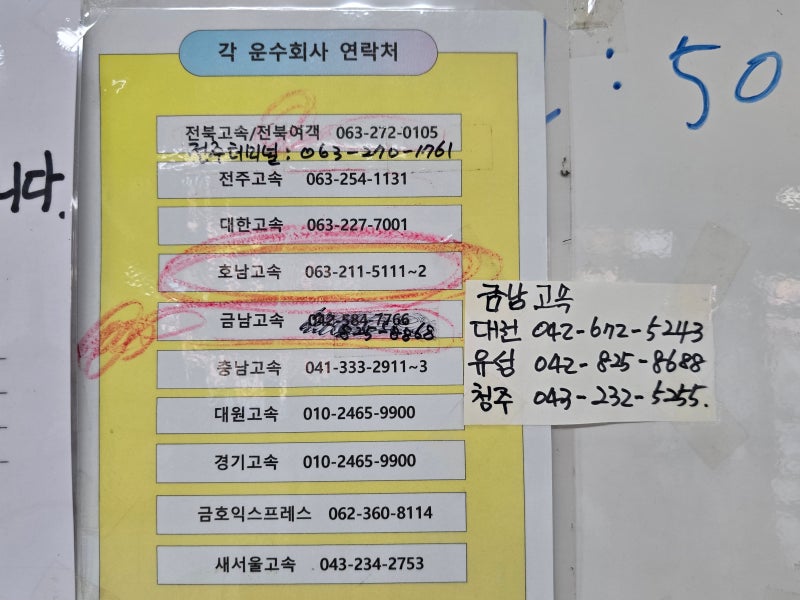 각 운수회사 연락처
: 50
전북고속/전북여객 063-272-0105
전주터미널: 063-270-1761
니다.
전주고속 063-254-1131
대한고속 063-227-7001
호남고속 063-211-5111~2
금남고속
금남고속
대전 042-672-5243
유성 042-825-8688
청주 043-232-5255.
충남고속 041-333-2911~3
대원고속 010-2465-9900
경기고속 010-2465-9900
금호익스프레스 062-360-8114
새서울고속 043-234-2753